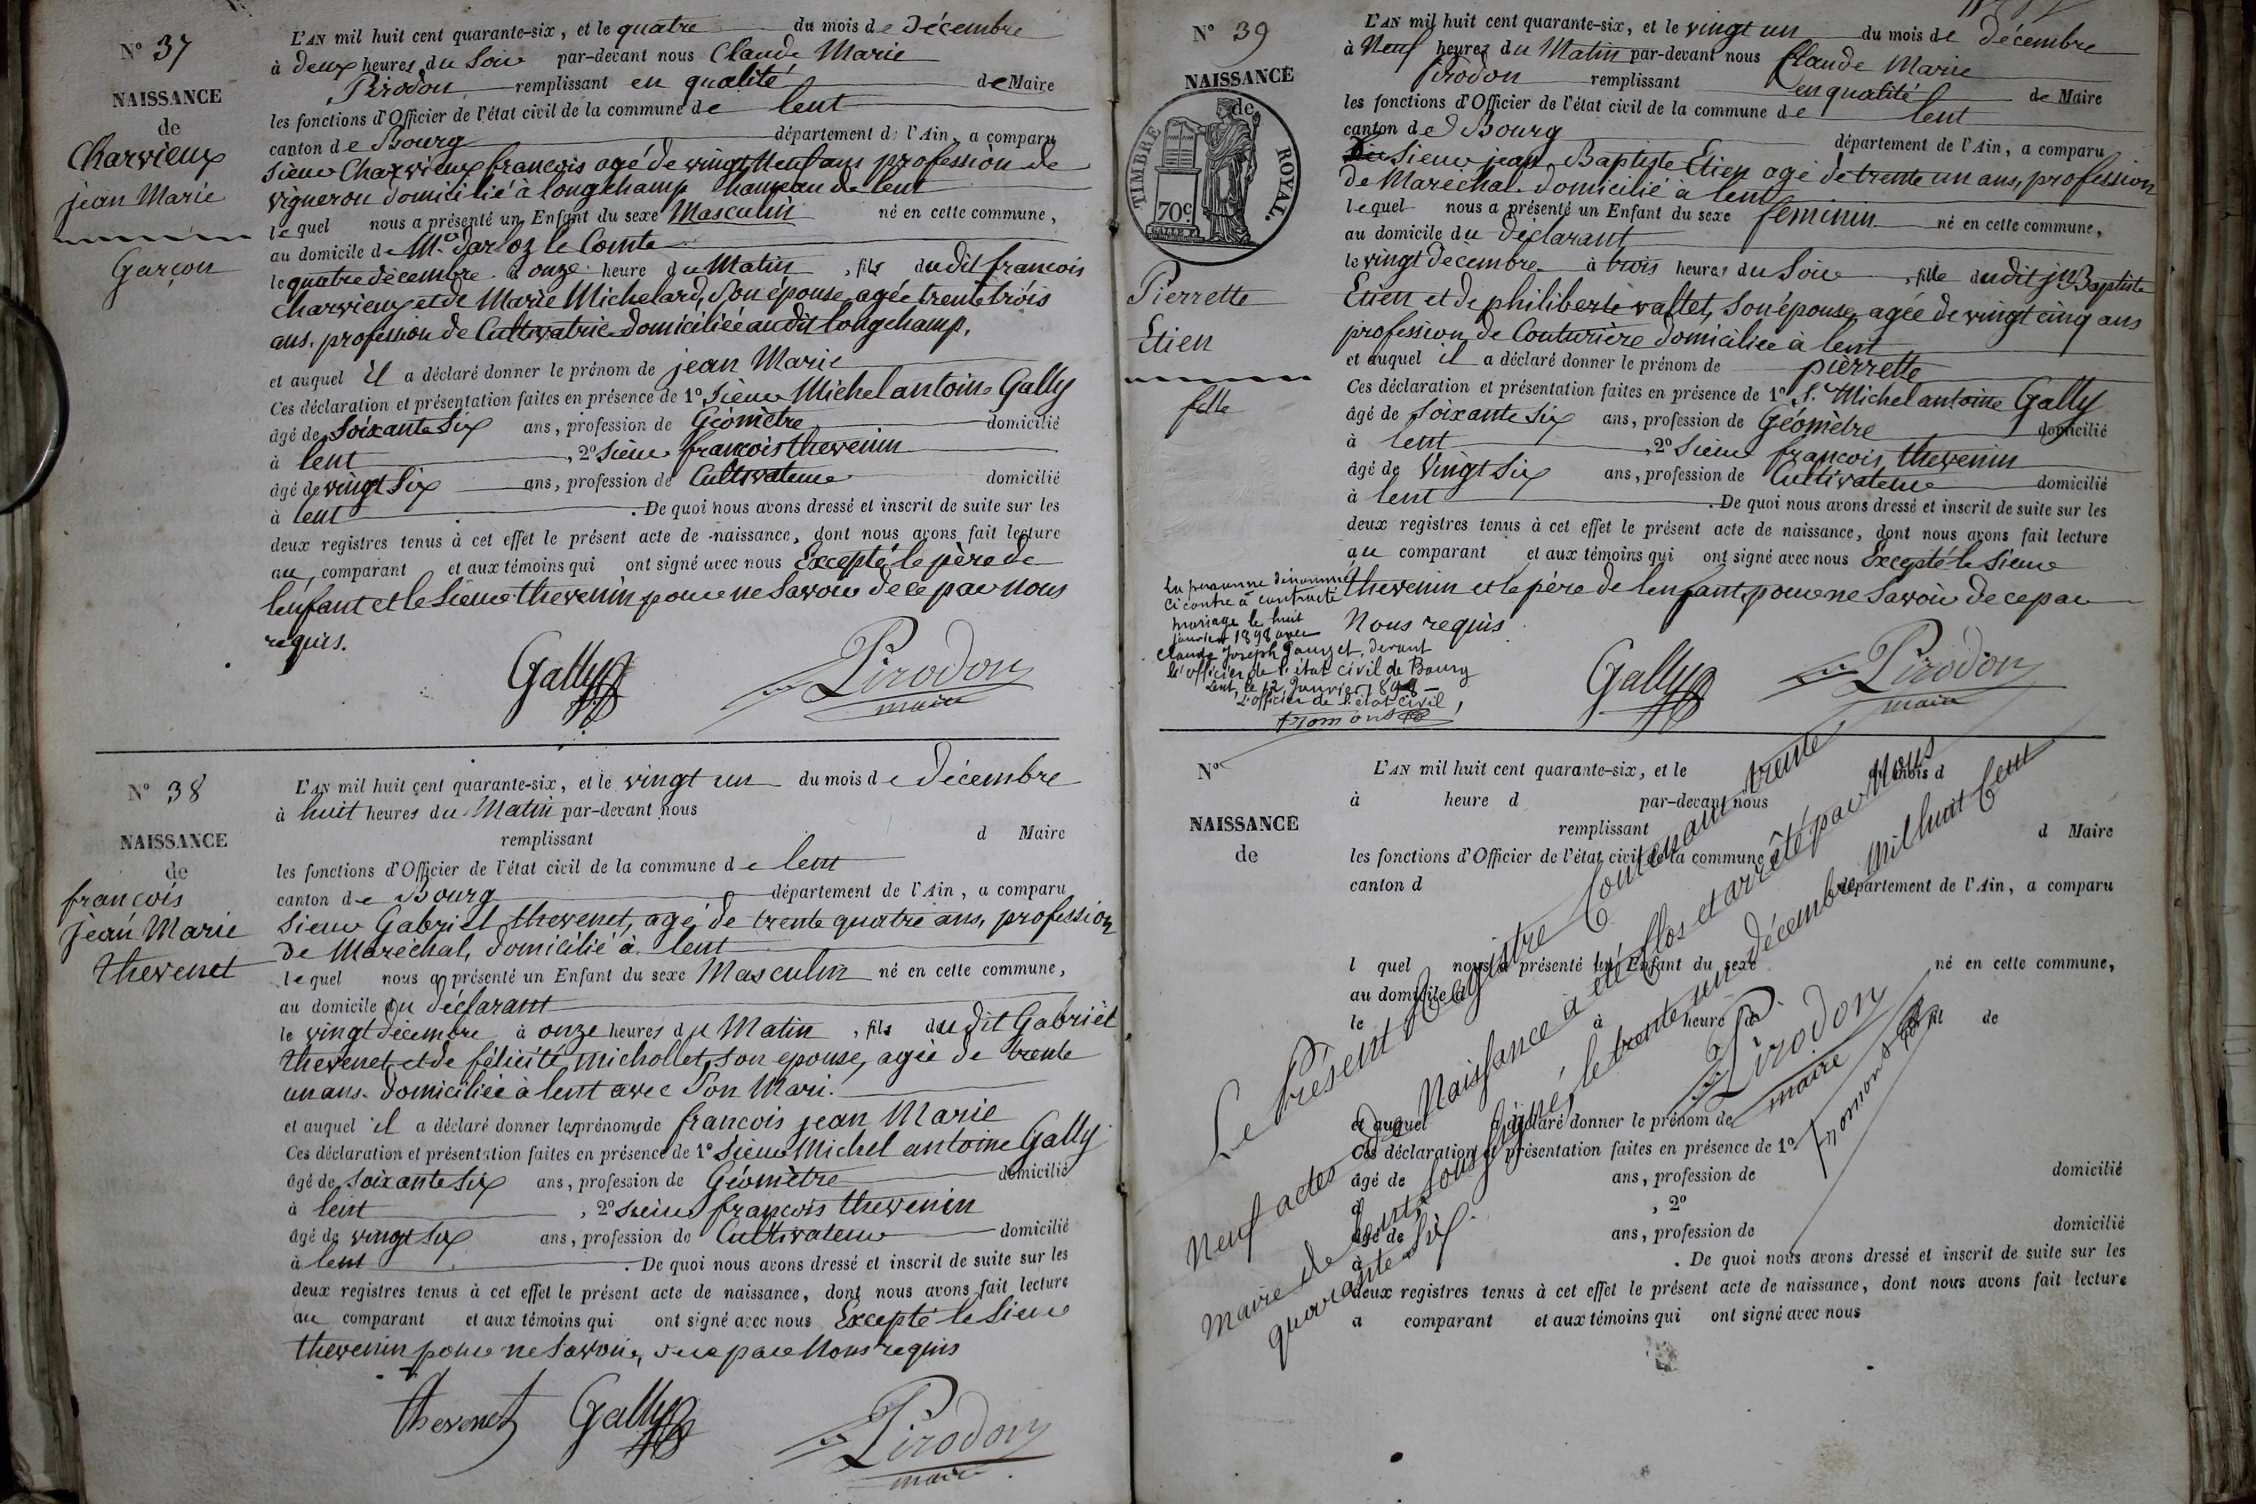 N° 37
NAISSANCE
de
Charvieux
jean Marie
Garçon
L'AN mil huit cent quarante-six, et le quatre du mois de décembre
à deux heures du Soir par-devant nous Claude Marie
Pirodon remplissant en qualité de Maire
les fonctions d'Officier de l'état civil de la commune de lent
canton de Bourg département de l'Ain, a comparu
Sieur Charvieux françois agé de vingt Neuf ans profession de
vigneron domicilié à longchamp hameau de lent
lequel nous a présenté un Enfant du sexe Masculin né en cette commune,
au domicile de Mr Darloz le Comte
le quatre décembre à onze heure du Matin, fils dudit francois
charvieux et de Marie Michelard, Son épouse agée trente trois
ans. profession de Cultivatrice domiciliée audit longchamp.
et auquel il a déclaré donner le prénom de jean Marie
Ces déclaration et présentation faites en présence de 1° Sieur Michel antoine Gally
âgé de Soixante Six ans, profession de Géomètre domicilié
à lent, 2° Sieur francois thevenin
âgé de vingt Six ans, profession de Cultivateur domicilié
à lent. De quoi nous avons dressé et inscrit de suite sur les
deux registres tenus à cet effet le présent acte de naissance, dont nous avons fait lecture
au comparant et aux témoins qui ont signé avec nous Excepté le père de
lenfant et le Sieur thevenin pour ne Savoir de ce par nous
requis.
Gally Pirodon
maire
N° 38
NAISSANCE
de
francois
jean Marie
thevenet
L'AN mil huit cent quarante-six, et le vingt un du mois de décembre
à huit heures du Matin par-devant nous
remplissant d Maire
les fonctions d'Officier de l'état civil de la commune de lent
canton de Bourg département de l'Ain, a comparu
Sieur Gabriel thevenet, agé de trente quatre ans, profession
de Maréchal, domicilié à lent
lequel nous a présenté un Enfant du sexe Masculin né en cette commune,
au domicile du déclarant
le vingt décembre à onze heures du Matin, fils dudit Gabriel
thevenet et de félicité michollet, son epouse, agée de trente
un ans. domiciliée à lent avec Son Mari.
et auquel il a déclaré donner les prénoms de francois jean Marie
Ces déclaration et présentation faites en présence de 1° Sieur Michel antoine Gally
âgé de Soixante Six ans, profession de Géomètre domicilié
à lent, 2° Sieur françois thevenin
âgé de vingt Six ans, profession de Cultivateur domicilié
à lent. De quoi nous avons dressé et inscrit de suite sur les
deux registres tenus à cet effet le présent acte de naissance, dont nous avons fait lecture
au comparant et aux témoins qui ont signé avec nous Excepté le Sieur
thevenin pour ne Savoir, de ce par Nous requis
thevenet Gally Pirodon
maire
N° 39
NAISSANCE
de
TIMBRE ROYAL.
70c.
Pierrette
Etien
fille
L'AN mil huit cent quarante-six, et le vingt un du mois de décembre
à Neuf heures du Matin par-devant nous Claude Marie
Pirodon remplissant en qualité de Maire
les fonctions d'Officier de l'état civil de la commune de lent
canton de Bourg département de l'Ain, a comparu
Sieur jean Baptiste Etien agé de trente un ans, profession
de Maréchal domicilié à lent
lequel nous a présenté un Enfant du sexe féminin né en cette commune,
au domicile du déclarant
le vingt décembre à trois heures du Soir, fille dudit jn Baptiste
Etien et de philiberte vallet, Son épouse, agée de vingt cinq ans
profession de Couturière domiciliée à lent
et auquel il a déclaré donner le prénom de pierrette
Ces déclaration et présentation faites en présence de 1° S. Michel antoine Gally
âgé de Soixante Six ans, profession de Géomètre domicilié
à lent, 2° Sieur françois thevenin
âgé de Vingt Six ans, profession de Cultivateur domicilié
à lent. De quoi nous avons dressé et inscrit de suite sur les
deux registres tenus à cet effet le présent acte de naissance, dont nous avons fait lecture
au comparant et aux témoins qui ont signé avec nous Excepté le Sieur
thevenin et le père de lenfant, pour ne Savoir de ce par
Nous requis
La personne dénommée
ci contre à contracté
mariage le huit
janvier 1898 avec
Claude Joseph, devant
l'officier de l'état civil de Bourg
Lent, le 12 Janvier 1898
L'officier de l'état civil,
Gally Pirodon
maire
N°
NAISSANCE
de
L'AN mil huit cent quarante-six, et le du mois d
à heure d par-devant nous
remplissant d Maire
les fonctions d'Officier de l'état civil de la commune d
canton d département de l'Ain, a comparu
l quel nous a présenté un Enfant du sexe né en cette commune,
au domicile d
le à heure d fil de
et auquel a déclaré donner le prénom de
Ces déclaration et présentation faites en présence de 1°
âgé de ans, profession de domicilié
à, 2°
âgé de ans, profession de domicilié
à. De quoi nous avons dressé et inscrit de suite sur les
deux registres tenus à cet effet le présent acte de naissance, dont nous avons fait lecture
a comparant et aux témoins qui ont signé avec nous
Le Présent Régistre Contenant trente
Neuf actes de Naissance a été Clos et arrêté par Nous
Maire de lent, soussigné, le trente un décembre Mil huit Cent
quarante Six.
Pirodon
maire